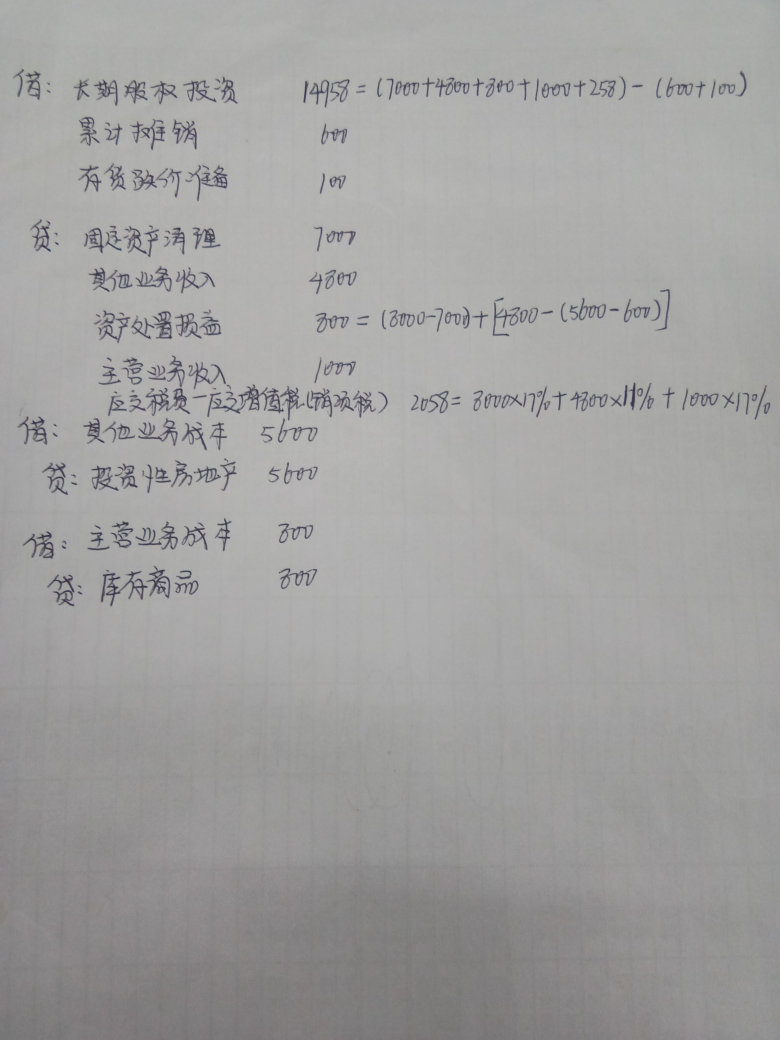 借: 长期股权投资 14958 = (7000+4800+800+1000+258) - (600+100)
累计摊销 600
存货跌价准备 100
贷: 固定资产清理 7000
其他业务收入 4800
资产处置损益 800 = (8000-7000)+[4800-(5600-600)]
主营业务收入 1000
应交税费—应交增值税(销项税) 2058 = 8000×17%+4800×11%+1000×17%
借: 其他业务成本 5600
贷: 投资性房地产 5600
借: 主营业务成本 800
贷: 库存商品 800